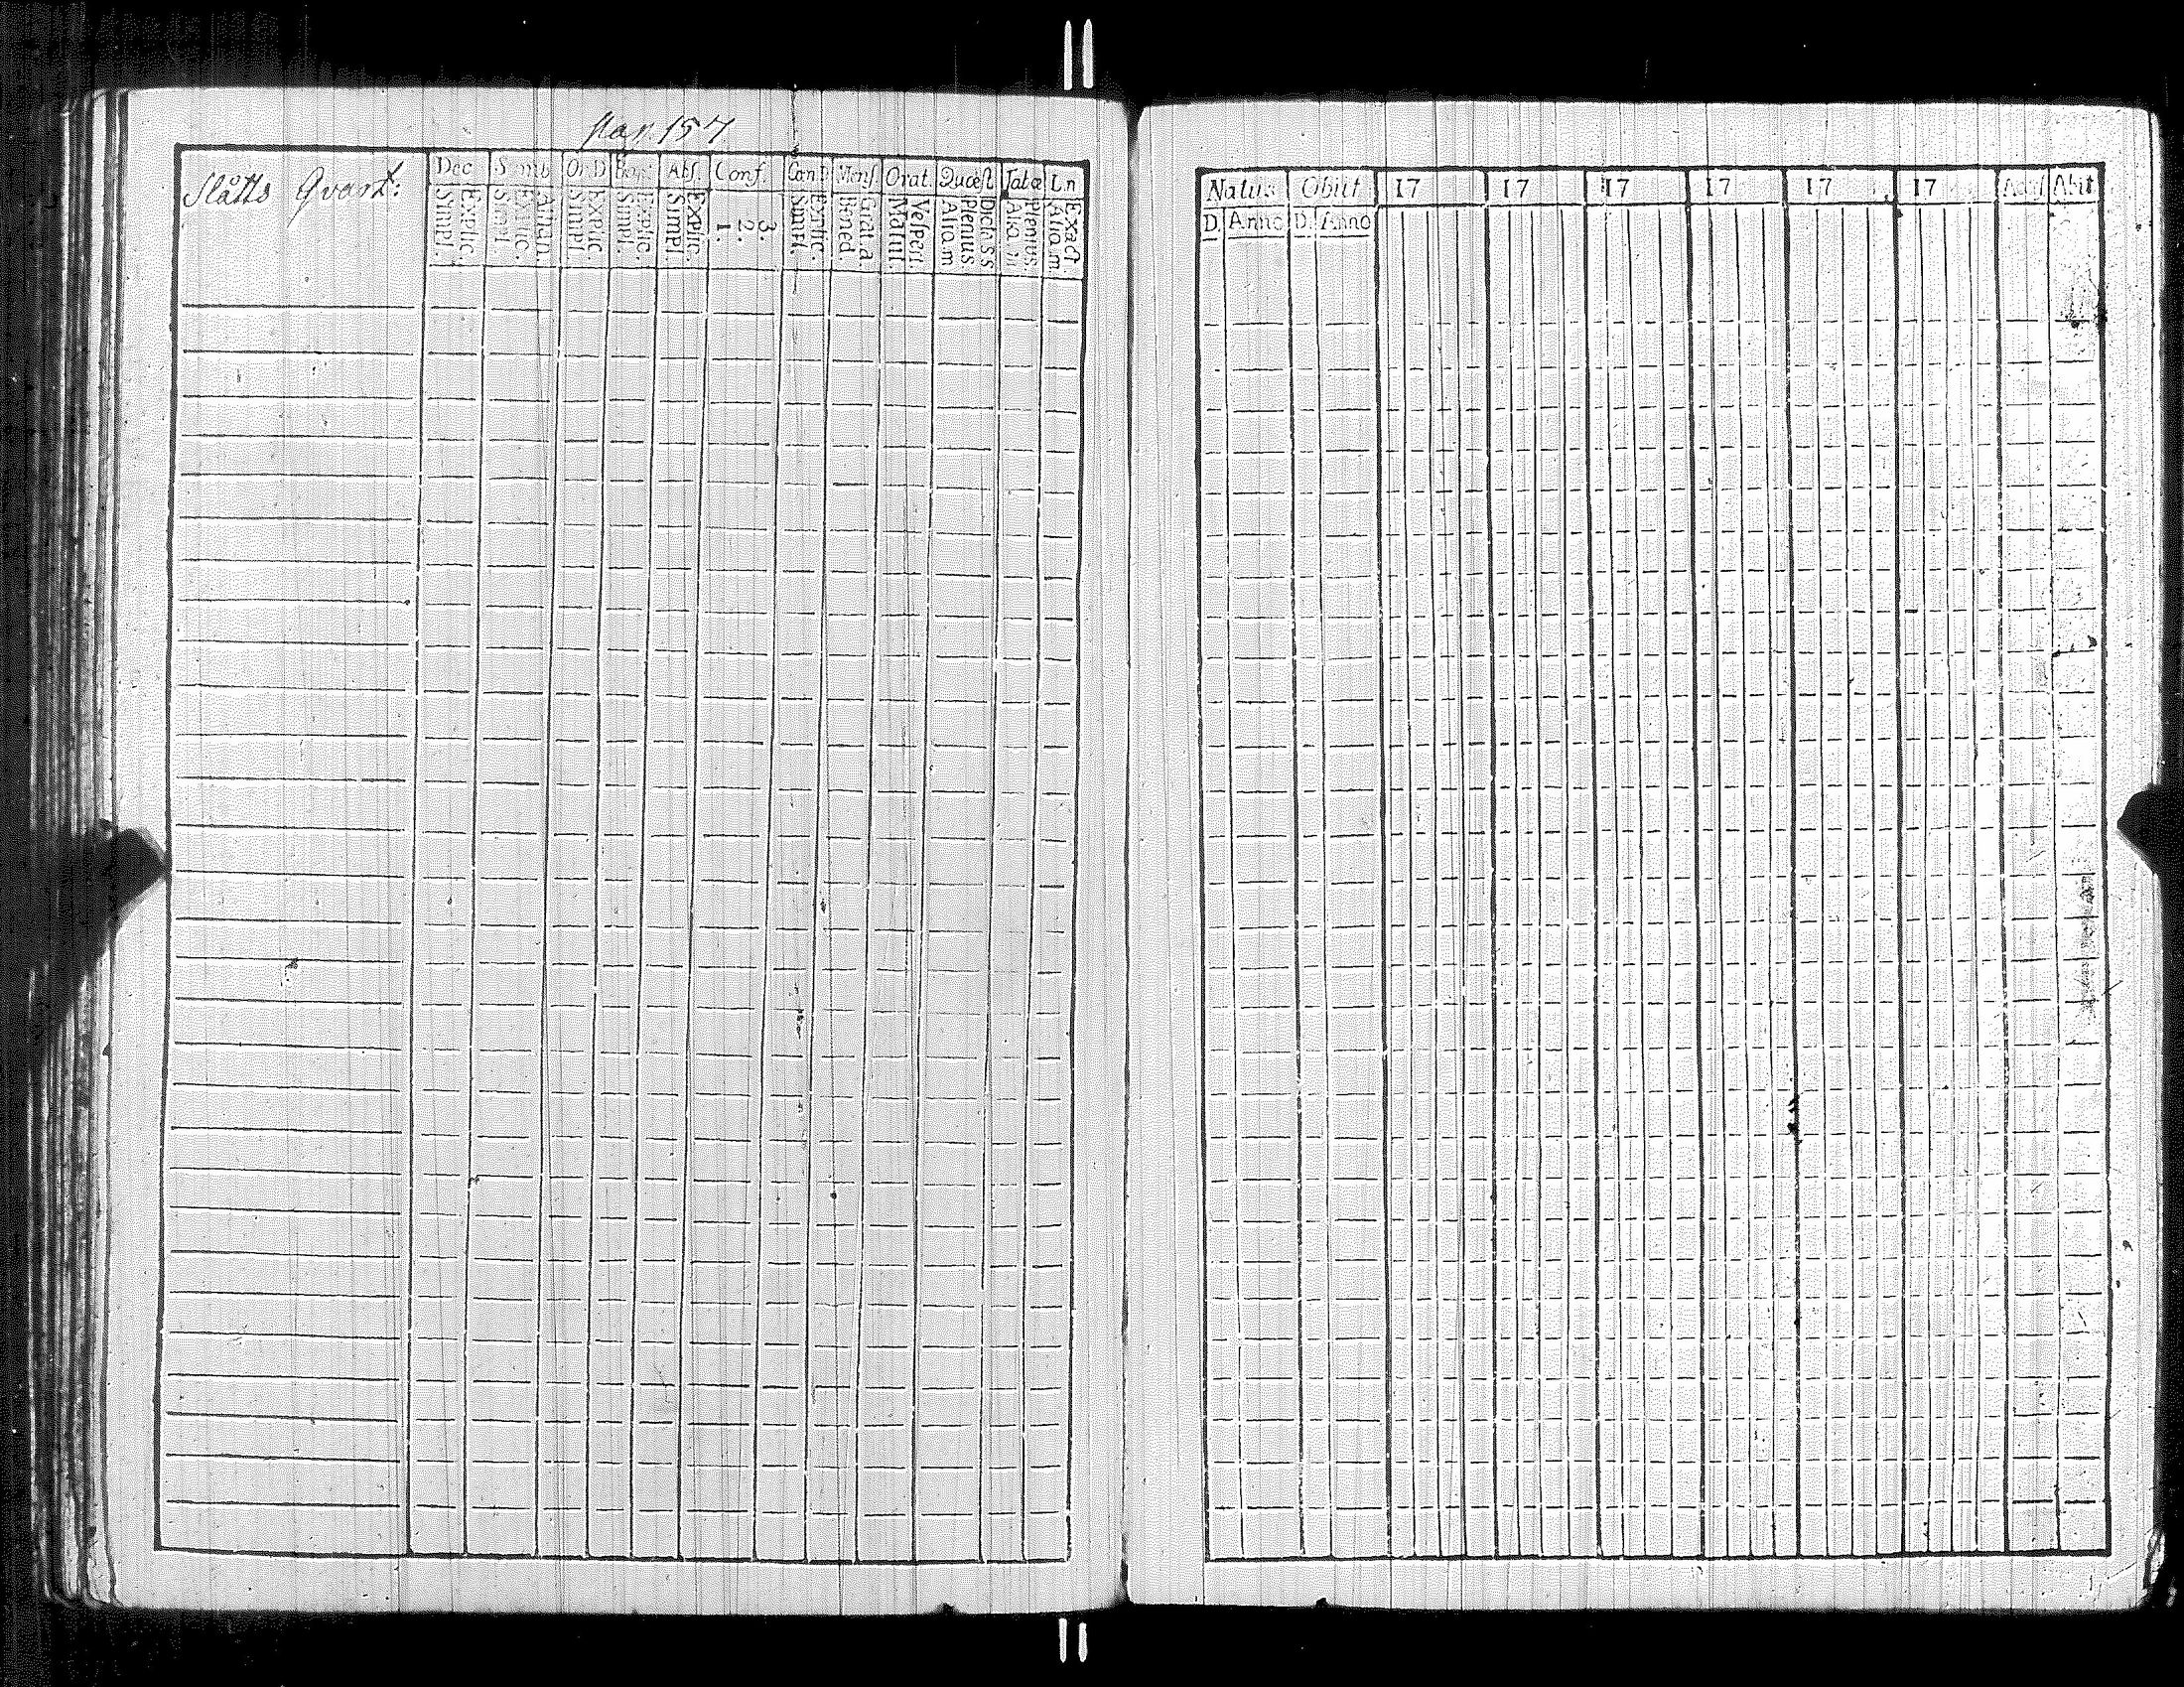 pag. 157
Slåtts Qvart:
Dec Symb Or D Bapt Abs. Conf. Cœn D Mens Orat. Quæst Tabæ Ln
Explic. Simpl. Athan. Explic. Simpl. Explic. Simpl. Explic. Simpl. Explic. Simpl. 3. 2. 1. Explic. Simpl. Grat. a Bened. Vesperi. Matut. Dicta ss Plenius. Aliq. m Plenius. Aliq. m Exact. Aliq. m.
Natus Obiit 17 17 17 17 17 17 Abiit
D. Anno D. Anno